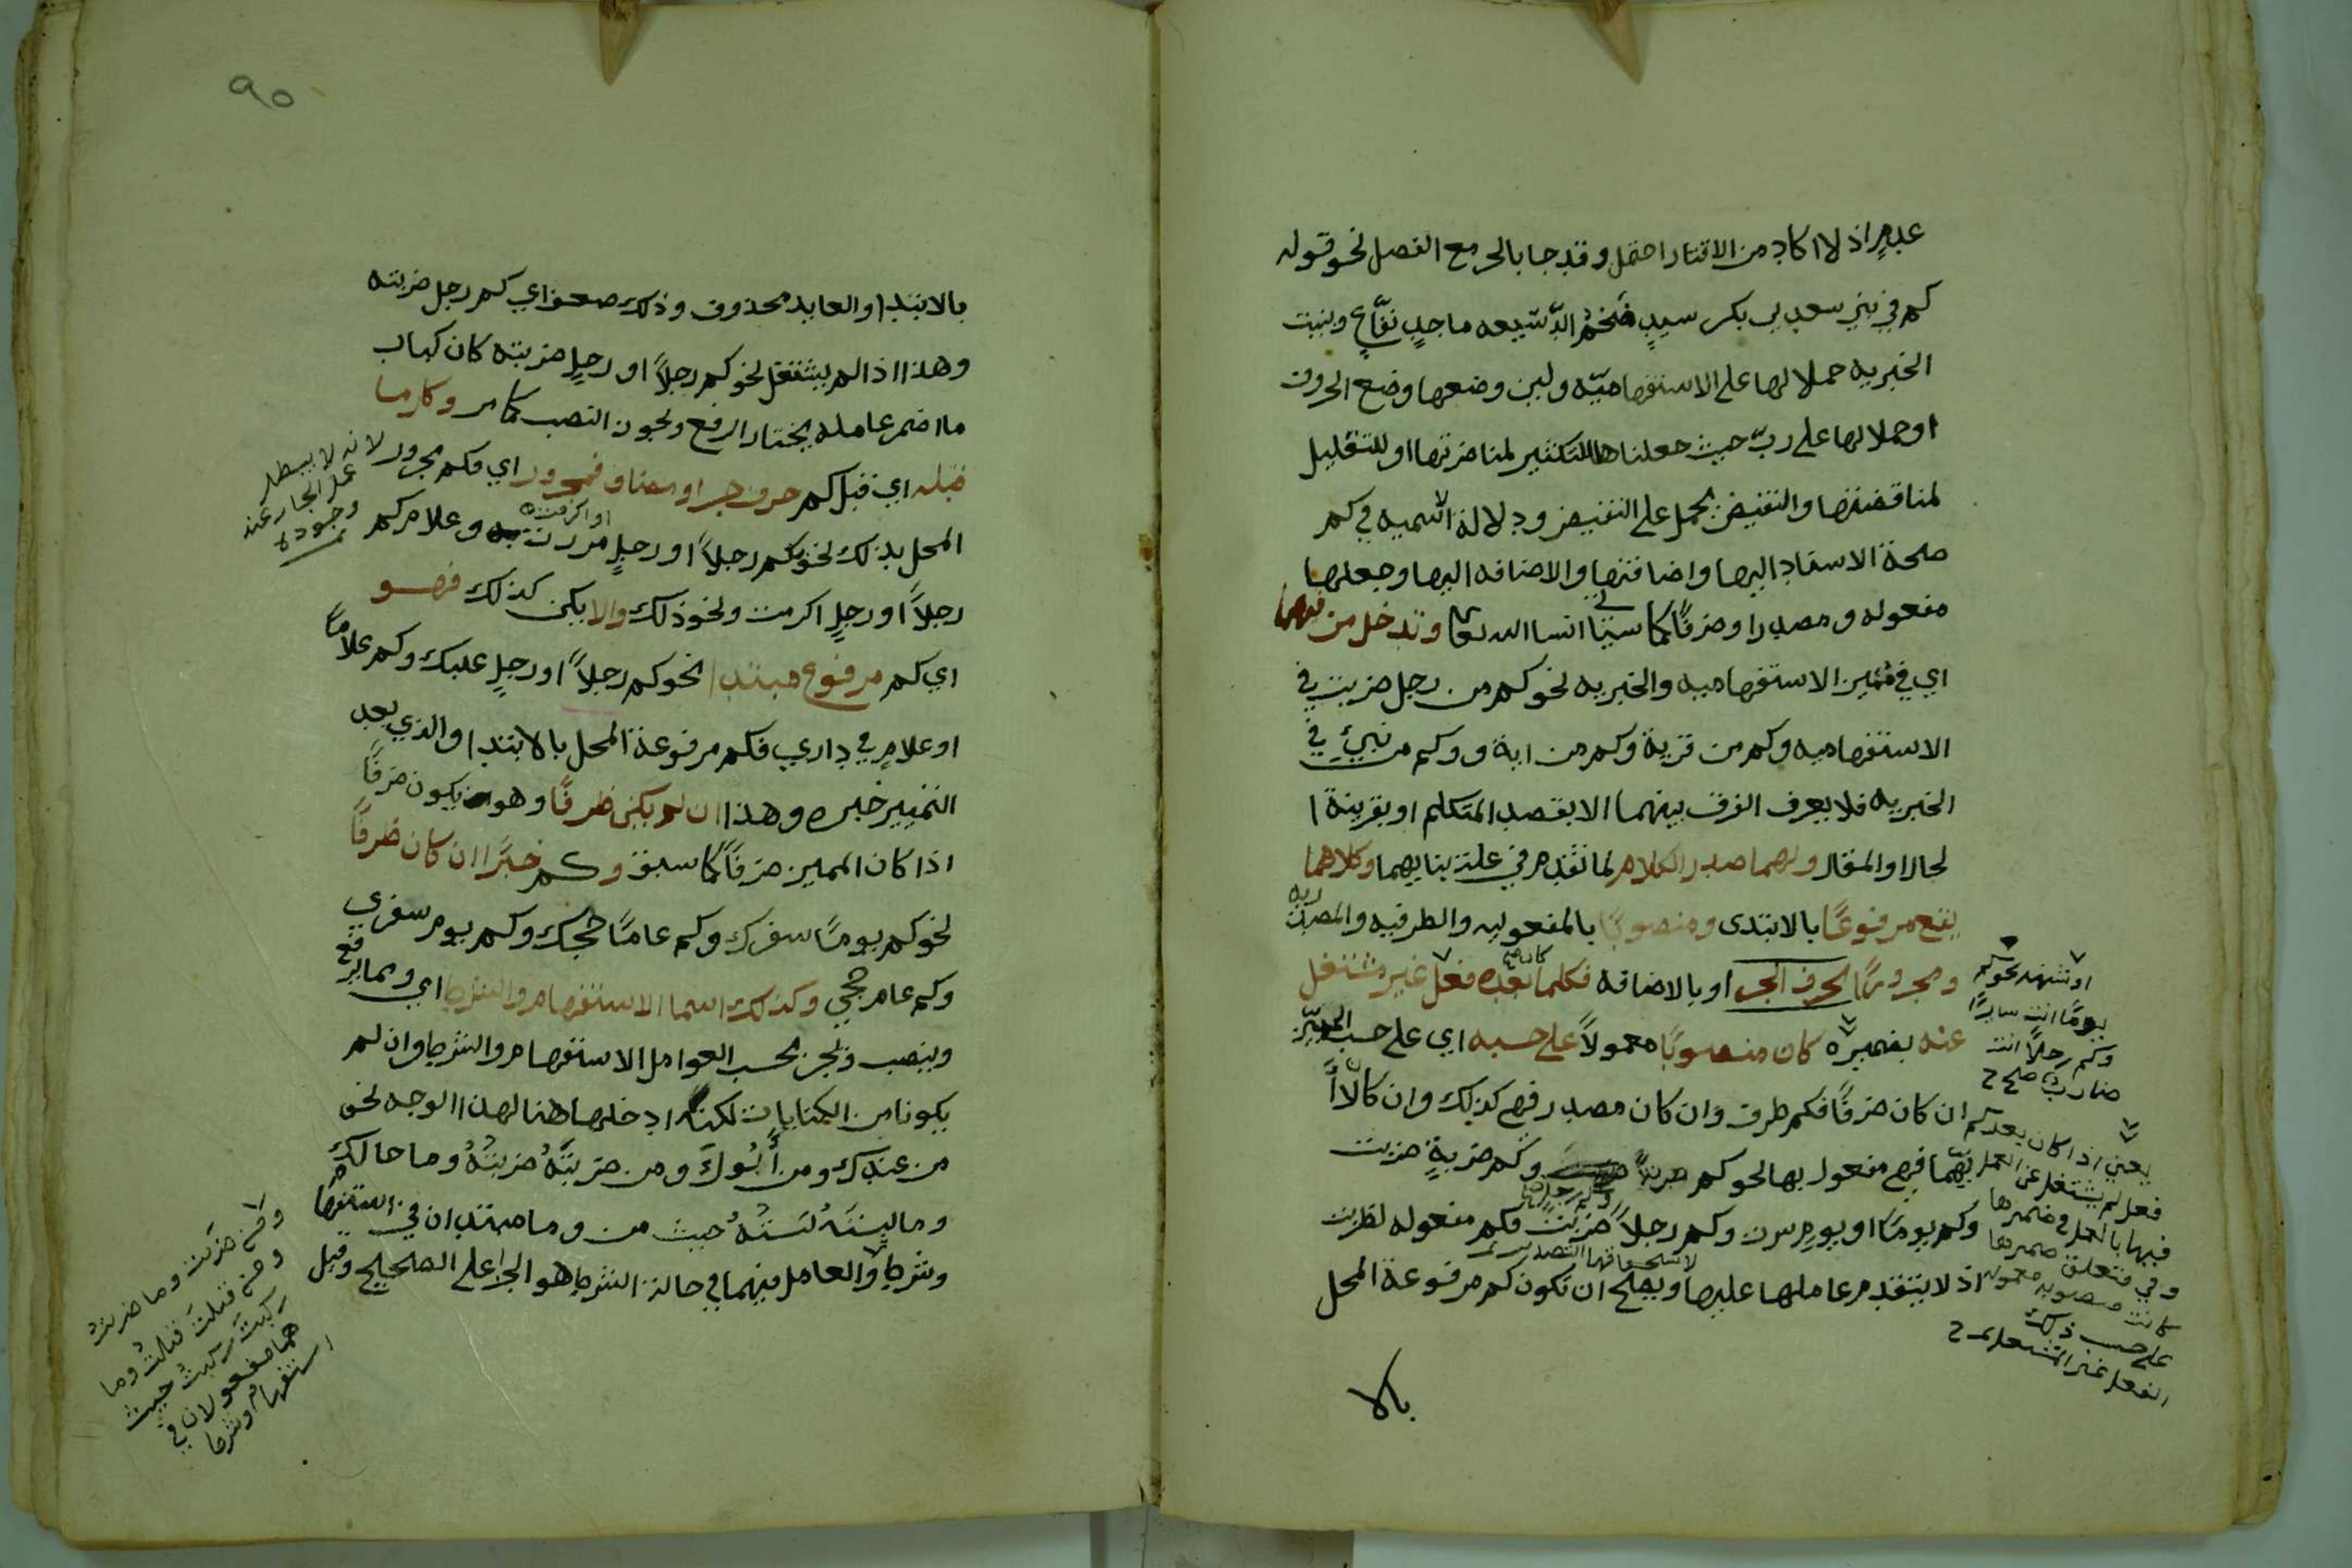 عدمٍ اذ لا اكاد من الاقتار احتمل وقد جا بالجر مع الفصل نحو قوله
كم في بني سعد بن بكر سيدٍ ضخم الدسيعه ماجدٍ نفّاعٍ وبنيت
الخبريه حملا لها على الاستفهاميّه ولبن وضعها وضع الحروف
او حملا لها على ربّ حيث جعلناها للتكثير لمناضرتها او للتقليل
لمناقضتها والنقيض يحمل على النقيض ودلالة اسميه في كم
صحة الاسناد اليها واضافتها والاضافه اليها وجعلها
مفعوله ومصدرا وضرفًا كما سيتا انشا الله تعالى وتدخل من فيهما
اي في مميز الاستفهاميه والخبريه نحو كم من رجل ضربت في
الاستفهاميه وكم من قرية وكم من اية و وكم من نبيٍ في
الخبريه فلا يعرف الفرق بينهما الا بقصد المتكلم او بقرينة ا
لحال او المقال ولهما صدر الكلام لما تقدم في علة بنايهما وكلاهما
يقع مرفوعًا بالابتدى ومنصوبًا بالمفعوليه والظرفيه والمصدريه
ومجرورًا بحرف الجر او بالاضافه فكلما كان بعده فعل غير مشتغل
عنه بضميره كان منصوبًا معمولاً على حسبه اي على حسب المميّز
ان كان ضرفًا فكم ظرف وان كان مصدر فهي كذلك وان كان لا
يّهما فهي مفعول بها نحو كم وكم ضربةٍ ضربت
وكم يومًا او يومٍ سرت وكم رجلاً ضربت فكم مفعوله لضربت
لاستحقاقها التصدير
اذ لا يتقدم عاملها عليها ويصلح ان تكون كم مرفوعة المحل
بالا
او شبهه نحو كم
يومًا انت سايرًا
وكم رجلاً انت
ضاربٌ صح
يعني اذا كان بعد كم
فعل لم يشتغل عن العمل
فيها بالعمل في ضميرها
وفي متعلق ضميرها
كانت منصوبه معموله
على حسب ذلك
الفعل غير المشتغل
٩٥
بالابتدا والعايد محذوف وذلك ضعف اي كم رجل ضربته
وهذا اذا لم يشتغل نحو كم رجلاً او رجلٍ ضربته كان كباب
ما اضمر عامله يختار الرفع ويجوز النصب كما مر وكل ما
قبله اي قبل كم حرف جر او مضاف فمجرور اي فكم مجرور لانه لا يبطل
عمل الجار عنه
وجوده
المحل بذلك نحو بكم رجلاً او رجلٍ مررت او اكرمت وغلام كم
رجلاً او رجلٍ اكرمت ونحو ذلك والا يكن كذلك فهو
اي كم مرفوع مبتدا نحو كم رجلاً او رجلٍ عليك وكم غلامًا
او غلامٍ في داري فكم مرفوعة المحل بالابتدا والذي بعد
التمييز خبره وهذا ان لم يكن ظرفًا وهو يكون ضرفًا
اذا كان المميز ضرفًا كما سبق وكم خبرًا ان كان ظرفًا
نحو كم يومًا سفرك وكم عامًا حجك وكم يوم سفري
وكم عام حجي وكذلك اسما الاستفهام والشرط اي ومما يرفع
وينصب ويجر بحسب العوامل الاستفهام والشرط وان لم
يكونا من الكنايات لكنه ادخلها هنا لهذا الوجه نحو
من عندك ومن ابُوك ومن ضربتَهُ ضربتُهُ وما حالك
وما لبستَهُ لبستُهُ حيث من وما مبتدان في استفهام
وشرط والعامل فيهما في حالة الشرط هو الجزا على الصحيح وقيل
ومن ضربت وما ضربتُ
ومن قتلتَ قتلتُ وما
ركبتَ ركبتُ حيث
هما مفعولان في
استفهام وشرط